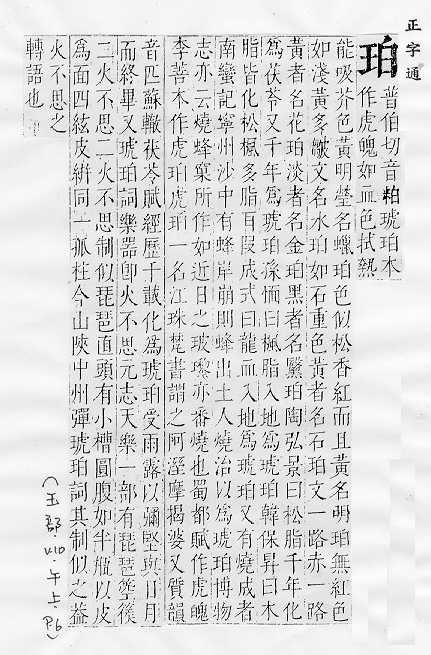 正字通
珀
普伯切音粕琥珀木
作虎魄如血色拭熱
能吸芥色黃明瑩名蠟珀色似松香紅而且黃名明珀無紅色
如淺黃多皺文名水珀如石重色黃者名石珀文一路赤一路
黃者名花珀淡者名金珀黑者名黳珀陶弘景曰松脂千年化
為茯苓又千年為琥珀孫愐曰楓脂入地為琥珀韓保昇曰木
脂皆化松楓多脂百段成式曰龍血入地為琥珀又有燒成者
南蠻記寧州沙中有蜂岸崩則蜂出土人燒治以為琥珀博物
志亦云燒蜂窠所作如近日之玻瓈亦番燒也蜀都賦作虎魄
李善本作虎珀虎珀一名江珠梵書謂之阿溼摩揭婆又質韻
音匹蘇轍茯苓賦經歷千載化為琥珀受雨露以彌堅與日月
而終畢又琥珀詞樂器卽火不思元志天樂一部有琵琶箜篌
二火不思二火不思制似琵琶直頭有小槽圓腹如半瓶以皮
為面四絃皮絣同一孤柱今山陝中州彈琥珀詞其制似之益
火不思之
轉語也
(玉部.V10.午上.P.6)